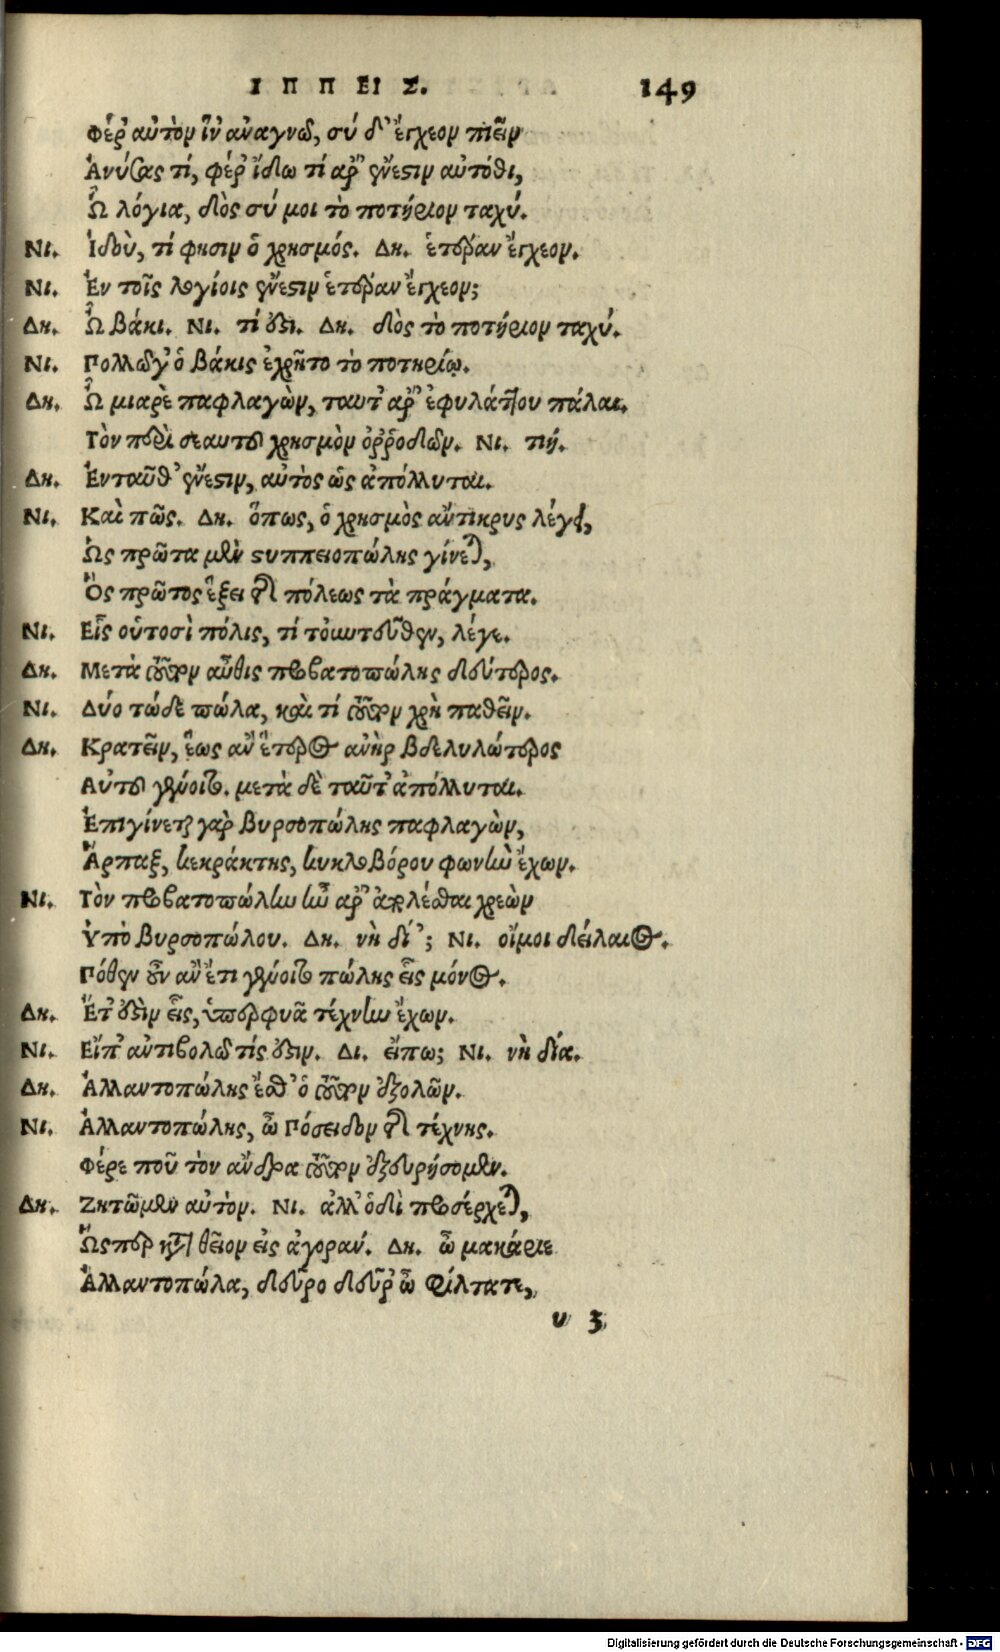 ΙΠΠΕΙΣ. 149
Φέρ' αὐτὸν ἵν' ἀναγνῶ, σύ δ' ἔγχεον πιεῖν
Ἀνύσας τί, φέρ' ἴδω τί ἄρ' ἔνεστιν αὐτόθι,
Ὦ λόγια, δὸς σύ μοι τὸ ποτήριον ταχύ.
Νι. Ἰδοὺ, τί φησιν ὁ χρησμός. Δη. ἑτέραν ἔγχεον.
Νι. Ἐν τοῖς λογίοις ἔνεστιν ἑτέραν ἔγχεον;
Δη. Ὦ βάκι. Νι. τί ἔστι. Δη. δὸς τὸ ποτήριον ταχύ.
Νι. Πολλῷ γ' ὁ βάκις ἐχρῆτο τὸ ποτηρίῳ.
Δη. Ὦ μιαρὲ παφλαγὼν, ταῦτ' ἄρ' ἐφυλάττου πάλαι.
Τὸν περὶ σεαυτοῦ χρησμὸν ὀῤῥοδῶν. Νι. τιή.
Δη. Ἐνταῦθ' ἔνεστιν, αὐτὸς ὡς ἀπόλλυται.
Νι. Καὶ πῶς. Δη. ὅπως, ὁ χρησμὸς ἄντικρυς λέγει,
Ὡς πρῶτα μὲν στυππειοπώλης γίνεται,
Ὃς πρῶτος ἕξει τῆς πόλεως τὰ πράγματα.
Νι. Εἷς οὑτοσὶ πόλις, τί τοὐντεῦθεν, λέγε.
Δη. Μετὰ τοῦτον αὖθις προβατοπώλης δεύτερος.
Νι. Δύο τώδε πώλα, καὶ τί τοῦτον χρὴ παθεῖν.
Δη. Κρατεῖν, ἕως ἂν ἕτερος ἀνὴρ βδελυλώτερος
Αὐτοῦ γένοιτο. μετὰ δὲ ταῦτ' ἀπόλλυται.
Ἐπιγίνεται γὰρ βυρσοπώλης παφλαγὼν,
Ἅρπαξ, κεκράκτης, κυκλοβόρου φωνὴν ἔχων.
Νι. Τὸν προβατοπώλην ἦν ἄρ' ἀπολέσθαι χρεὼν
Ὑπὸ βυρσοπώλου. Δη. νὴ δί'; Νι. οἴμοι δείλαιος.
Πόθεν οὖν ἂν ἔτι γένοιτο πώλης εἷς μόνος.
Δη. Ἔτ' ἐστὶν εἷς, ὑπερφυᾶ τέχνην ἔχων.
Νι. Εἴπ' ἀντιβολῶ τίς ἔστιν. Δι. εἴπω; Νι. νὴ δία.
Δη. Ἀλλαντοπώλης ἔσθ' ὁ τοῦτον ἐξολῶν.
Νι. Ἀλλαντοπώλης, ὦ Πόσειδον τῆς τέχνης.
Φέρε ποῦ τὸν ἄνδρα τοῦτον ἐξευρήσομεν.
Δη. Ζητῶμεν αὐτόν. Νι. ἀλλ' ὁδὶ προσέρχεται,
Ὥσπερ κατὰ θεῖον εἰς ἀγοράν. Δη. ὦ μακάριε
Ἀλλαντοπώλα, δεῦρο δεῦρ' ὦ φίλτατε,
υ 3
Digitalisierung gefördert durch die Deutsche Forschungsgemeinschaft - DFG